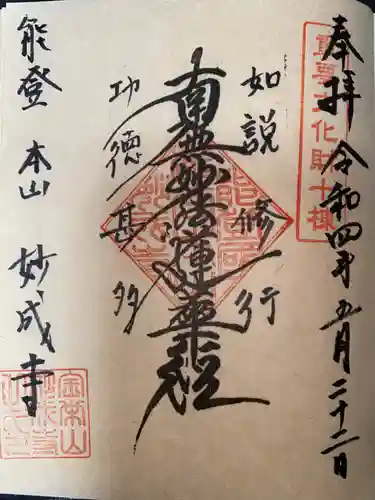 奉拝 令和四年五月二十二日
重要文化財十棟
如説修行
南無妙法蓮華経
功徳甚多
能登 本山 妙成寺
金栄山